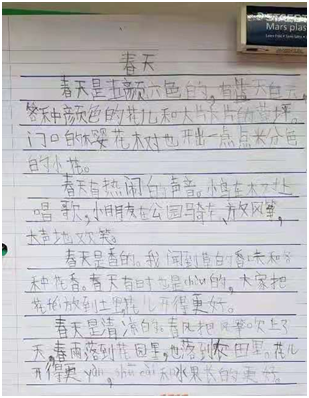 STAEDTLER
Mars plas
春天
春天是五颜六色的,有蓝天白云,
各种颜色的花儿和大片大片的草坪,
门口的樱花树也开出一点点米分色
的小花。
春天有热闹的声音。小鸟在木又上
唱歌,小朋友在公园骑车、放风筝,
大声地欢笑。
春天是香的。我闻到鸟的香味和各
种花香。春天有时也是chòu的,大家把
花肥放到土里,花儿开得更好。
春天是清凉的。春风把风筝吹上了
天,春雨落到花园里,也落到农田里。花儿
开得更 和水果长的更好。